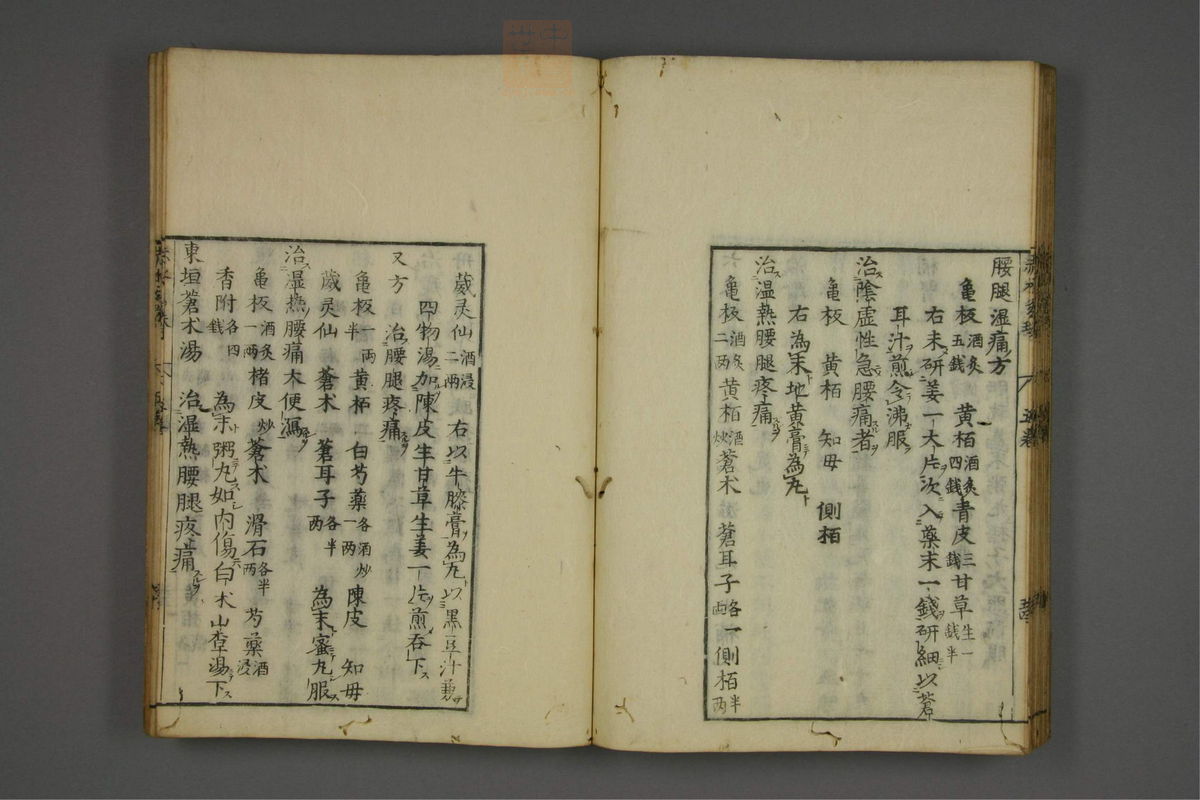 腰腿湿痛方
亀板酒炙五銭 黄栢酒炙四銭 青皮三銭 甘草生一銭半
右末研姜一大片次入薬末一銭研細以蒼
耳汁煎令沸服
治陰虚性急腰痛者
亀板 黄栢 知母 側栢
右為末地黄膏為丸
治湿熱腰腿疼痛
亀板酒炙二両 黄栢酒炒 蒼术 蒼耳子各一両 側栢半両
葳灵仙酒浸二両 右以牛膝膏為丸以黒豆汁兼
四物湯加陳皮生甘草生姜一片煎吞下
又方 治腰腿疼痛
亀板一両半 黄栢二 白芍薬各酒炒一両 陳皮 知母
葳灵仙 蒼术 蒼耳子各半両 為末蜜丸服
治湿熱腰痛大便瀉
亀板酒炙一両 楮皮炒 蒼术 滑石各半両 芍薬酒浸
香附各四銭 為末粥丸如内傷白术山查湯下
東垣蒼术湯 治湿熱腰腿疼痛